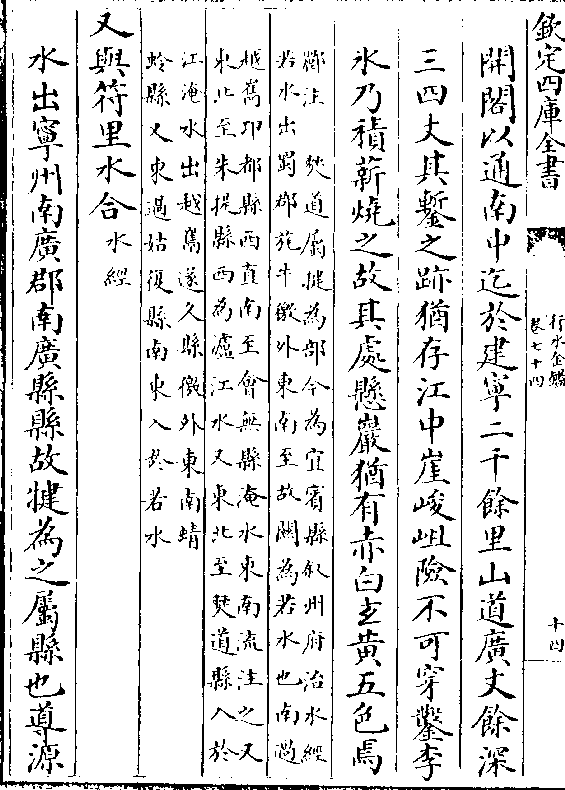 欽定四庫全書
行水金鑑
卷七十四
十四
開閣以通南中迄於建寧二千餘里山道廣丈餘深
三四丈其鏨之跡猶存江中崖峻岨險不可穿鑿李
氷乃積薪燒之故其處懸巖猶有赤白玄黄五色焉
酈注 僰道屬犍為郡今為宜賓縣叙州府治水經
若水出蜀郡旄牛徼外東南至故關為若水也南過
越嶲邛都縣西直南至會無縣淹水東南流注之又
東北至朱提縣西為瀘江水又東北至僰道縣入於
江淹水出越嶲遂久縣徼外東南蜻
蛉縣又東過姑復縣南東入於若水
又與符里水合水經
水出寧州南廣郡南廣縣縣故犍為之屬縣也導源